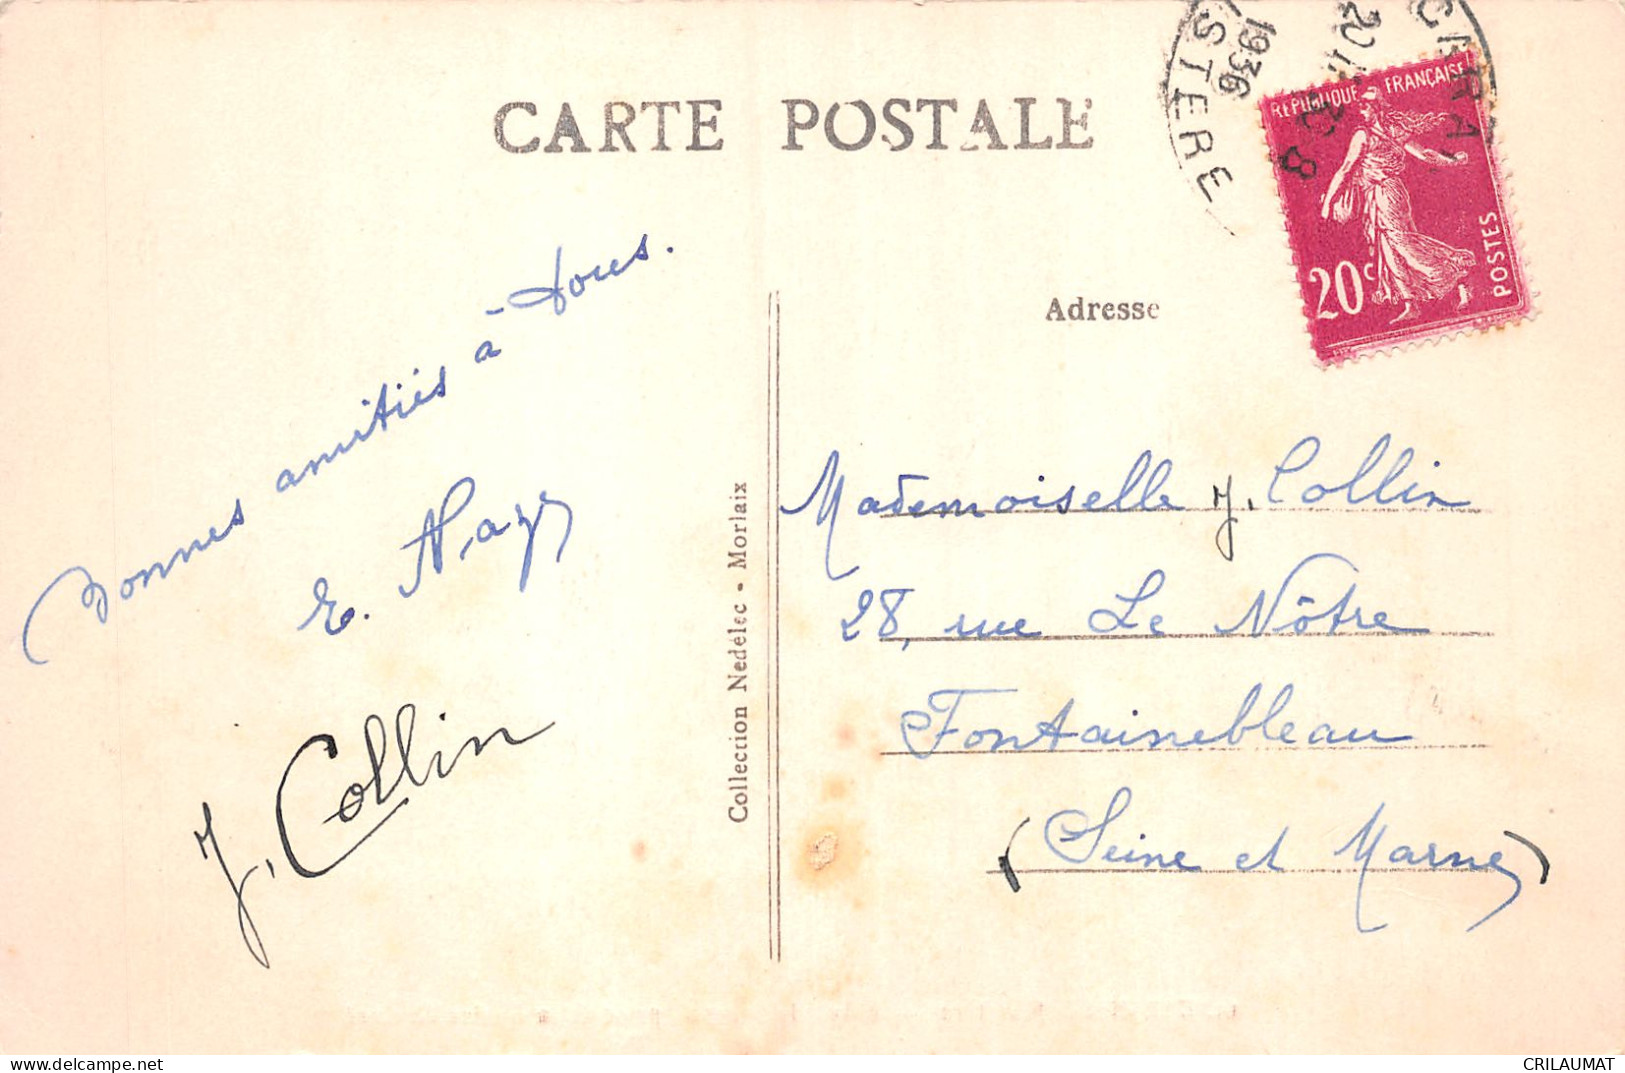 CARTE POSTALE
RÉPUBLIQUE FRANÇAISE
20c
POSTES
1936
ISTERE
Adresse
Bonnes amitiés à tous.
J. Collin
Collection Nedelec - Morlaix
Mademoiselle J. Collin
28, rue Le Nôtre
Fontainebleau
(Seine et Marne)
delcampe.net
CRILAUMAT